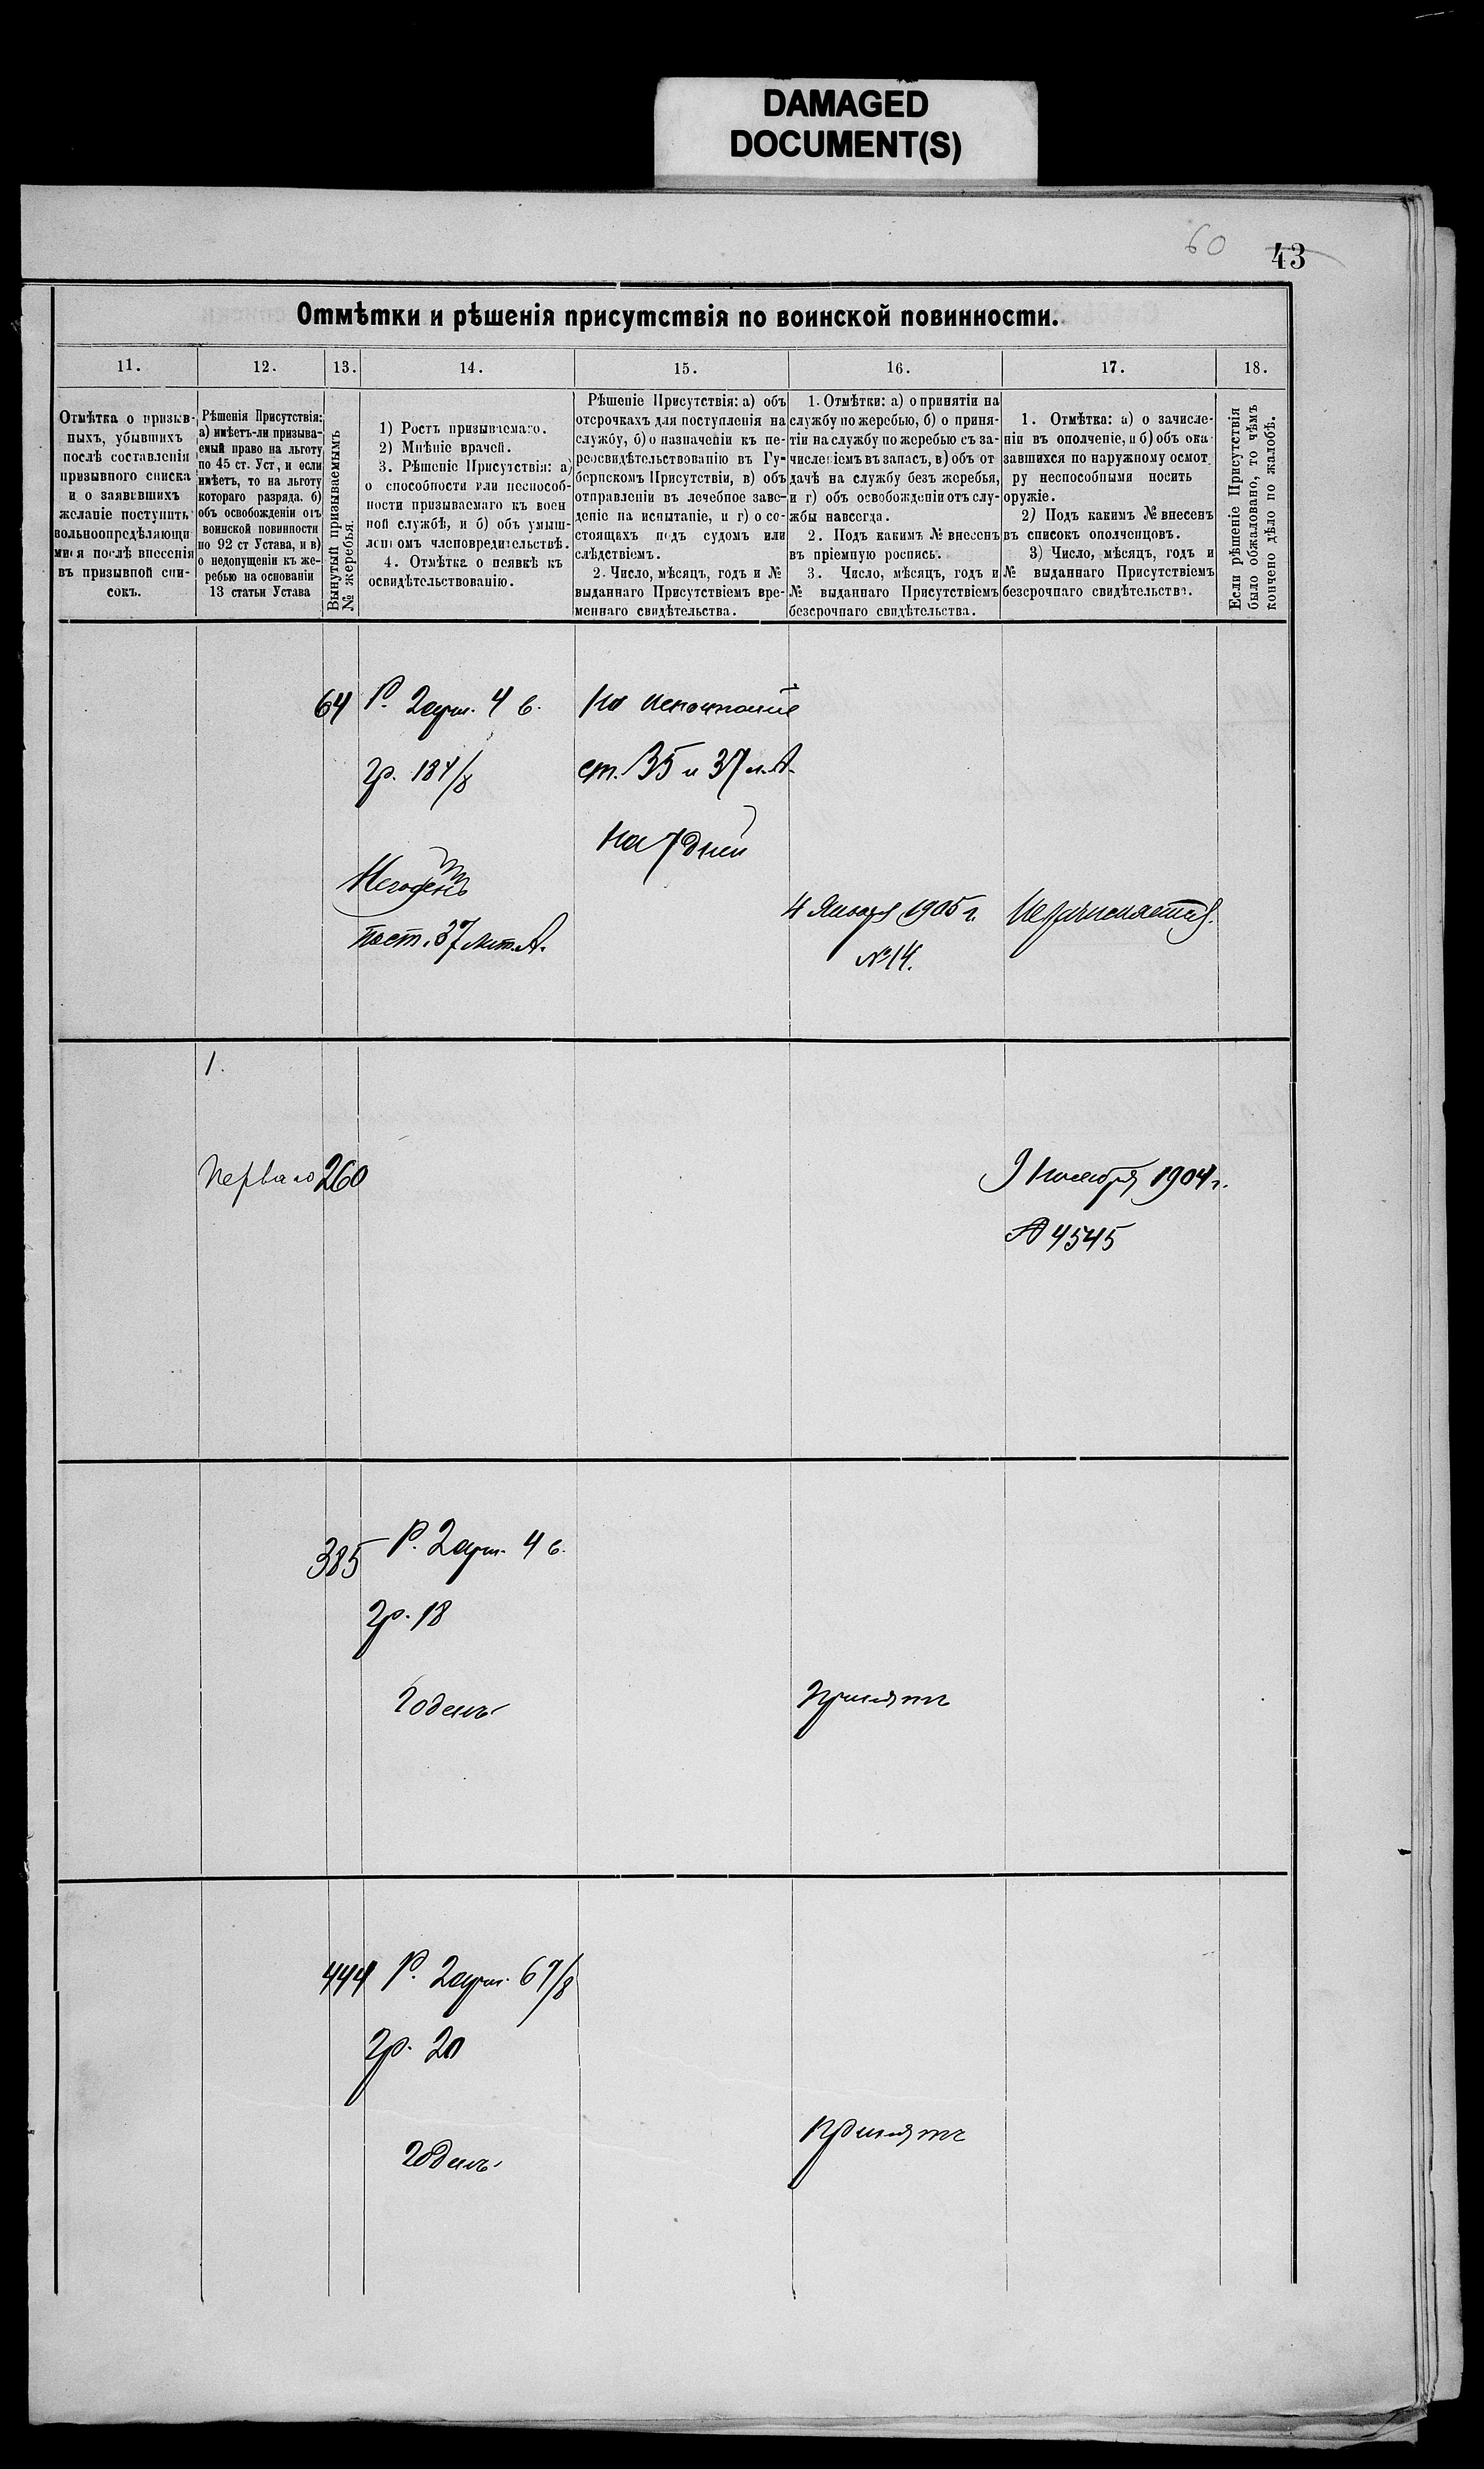 DAMAGED
DOCUMENT(S)
60 43
Отмѣтки и рѣшенія присутствія по воинской повинности.
11. 12. 13. 14. 15. 16. 17. 18.
Отмѣтка о призыв-
ныхъ, убывшихъ
послѣ составленія
призывного списка
и о заявившихъ
желаніе поступить
вольноопредѣляющи
мися послѣ внесенія
въ призывной спи-
сокъ.
Рѣшенія Присутствія:
а) имѣетъ-ли призыва-
емый право на льготу
по 45 ст. Уст, и если
имѣетъ, то на льготу
котораго разряда. б)
объ освобожденіи отъ
воинской повинности
по 92 ст Устава, и в)
о недопущеніи къ же-
ребью на основаніи
13 статьи Устава
Вынутый призываемымъ
№ жеребья.
1) Ростъ призываемаго.
2) Мнѣніе врачей.
3. Рѣшеніе Присутствія: а)
о способности или неспособ-
ности призываемаго къ воен
ной службѣ, и б) объ умыш-
ленномъ членовредительствѣ.
4. Отмѣтка о неявкѣ къ
освидѣтельствованію.
Рѣшеніе Присутствія: а) объ
отсрочкахъ для поступленія на
службу, б) о назначеніи къ пе-
реосвидѣтельствованію въ Гу-
бернскомъ Присутствіи, в) объ
отправленіи въ лечебное заве-
деніе на испытаніе, и г) о со-
стоящахъ подъ судомъ или
слѣдствіемъ.
2. Число, мѣсяцъ, годъ и №
выданнаго Присутствіемъ вре-
меннаго свидѣтельства.
1. Отмѣтки: а) о принятіи на
службу по жеребью, б) о приня-
тіи на службу по жеребью съ за-
численіемъ въ запасъ, в) объ от
дачѣ на службу безъ жеребья,
и г) объ освобожденіи отъ слу-
жбы навсегда.
2. Подъ какимъ № внесенъ
въ пріемную роспись.
3. Число, мѣсяцъ, годъ и
№ выданнаго Присутствіемъ
безсрочнаго свидѣтельства.
1. Отмѣтка: а) о зачисле-
ніи въ ополченіе, и б) объ ока
завшихся по наружному осмот
ру неспособными носить
оружіе.
2) Подъ какимъ № внесенъ
въ списокъ ополченцовъ.
3) Число, мѣсяцъ, годъ и
№ выданнаго Присутствіемъ
безсрочнаго свидѣтельства.
Если рѣшеніе Присутствія
было обжаловано, то чѣмъ
кончено дѣло по жалобѣ.
64 Р. 2арш. 4 в.
гр. 18 4/8
Негоденъ
по ст. 37 лит. А.
На испытаніе
ст. 35 и 37 л. А.
на 7 дней
4 Января 1905 г.
№ 14.
Не зачисляется.
1.
Перваго 260
9 Ноября 1904 г.
№ 4545
385 Р. 2арш. 4 в.
гр. 18
Годенъ
Принятъ
444 Р. 2арш. 6 1/8
гр. 20
Годенъ
Принятъ